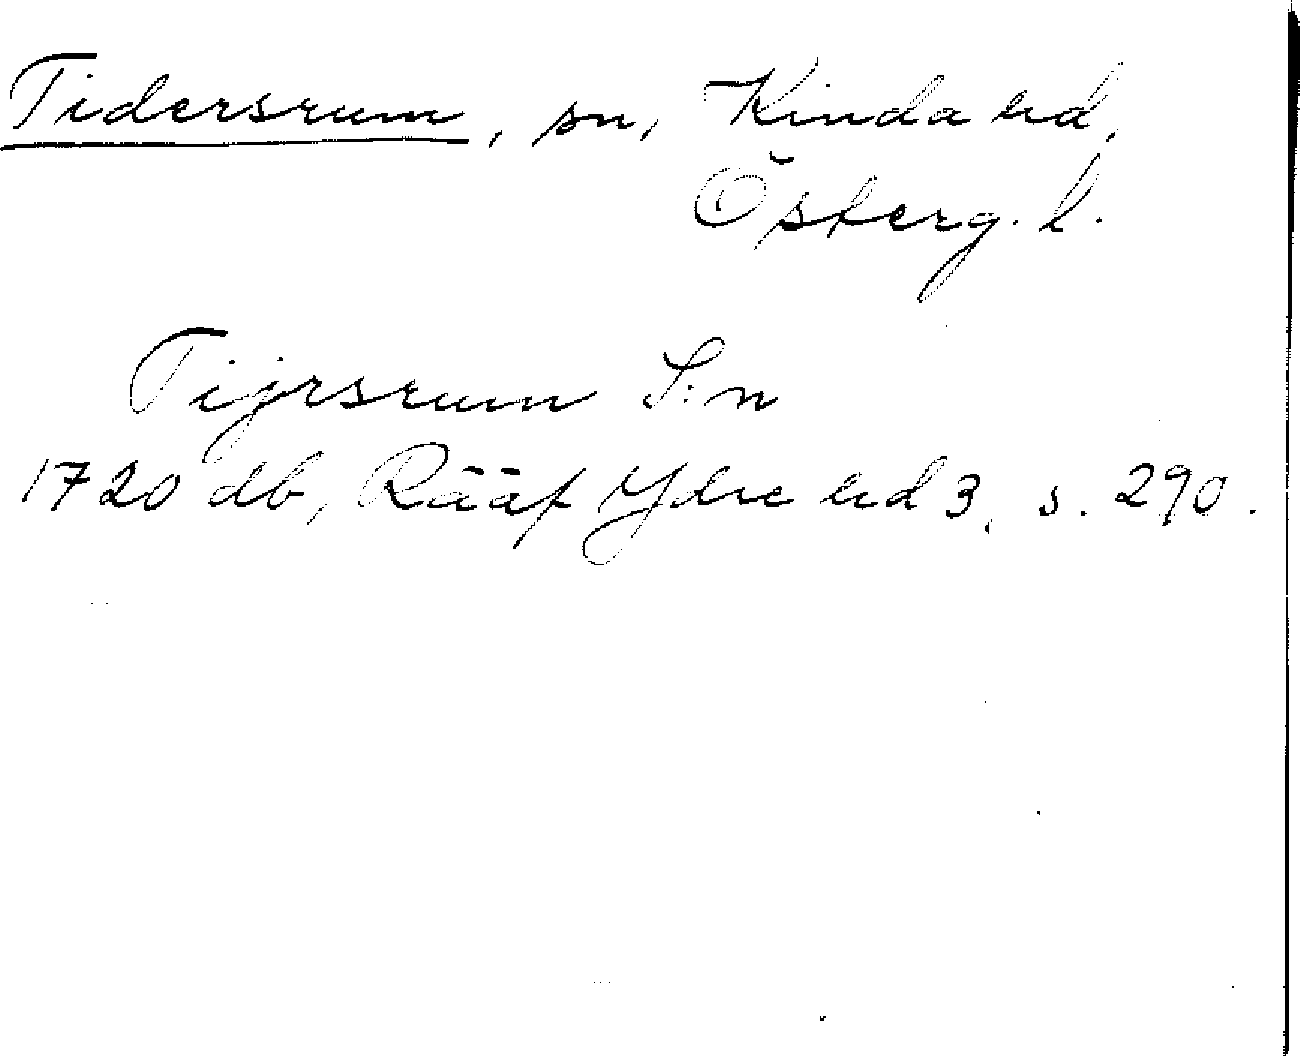 Tidersrum, sn, Kinda hd,
Österg. l.
Tijrsrum S:n
1720 db, Rääf Ydre hd 3, s. 290.